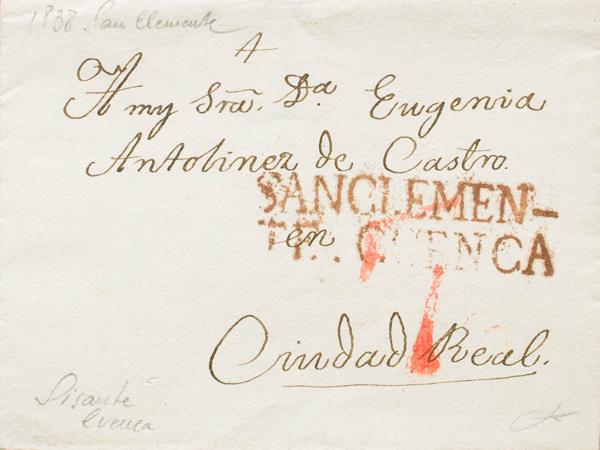 1838. San Clemente
A
A my Srã. Dª Eugenia
Antolinez de Castro.
SANCLEMEN-
TE. CUENCA
en
7
Ciudad Real.
Sisante
Cuenca